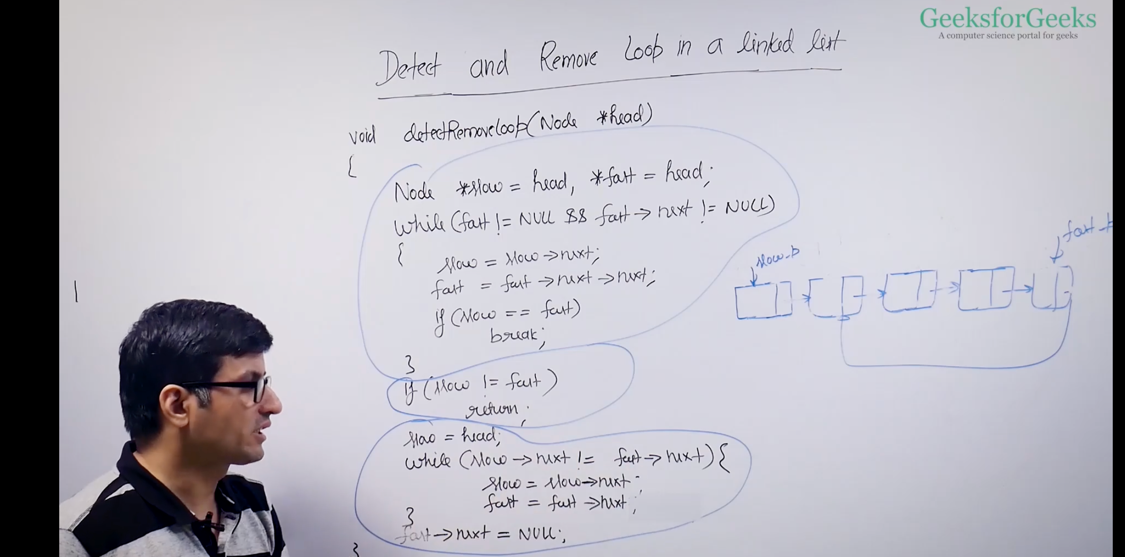 GeeksforGeeks
A computer science portal for geeks
Detect and Remove Loop in a linked list
void detectRemoveloop(Node *head)
{
Node *slow = head, *fast = head;
while (fast != NULL && fast → next != NULL)
{
slow = slow → next;
fast = fast → next → next;
if (slow == fast)
break;
}
if (slow != fast)
return;
slow = head;
while (slow → next != fast → next) {
slow = slow → next;
fast = fast → next;
}
fast → next = NULL;
}
slow_p